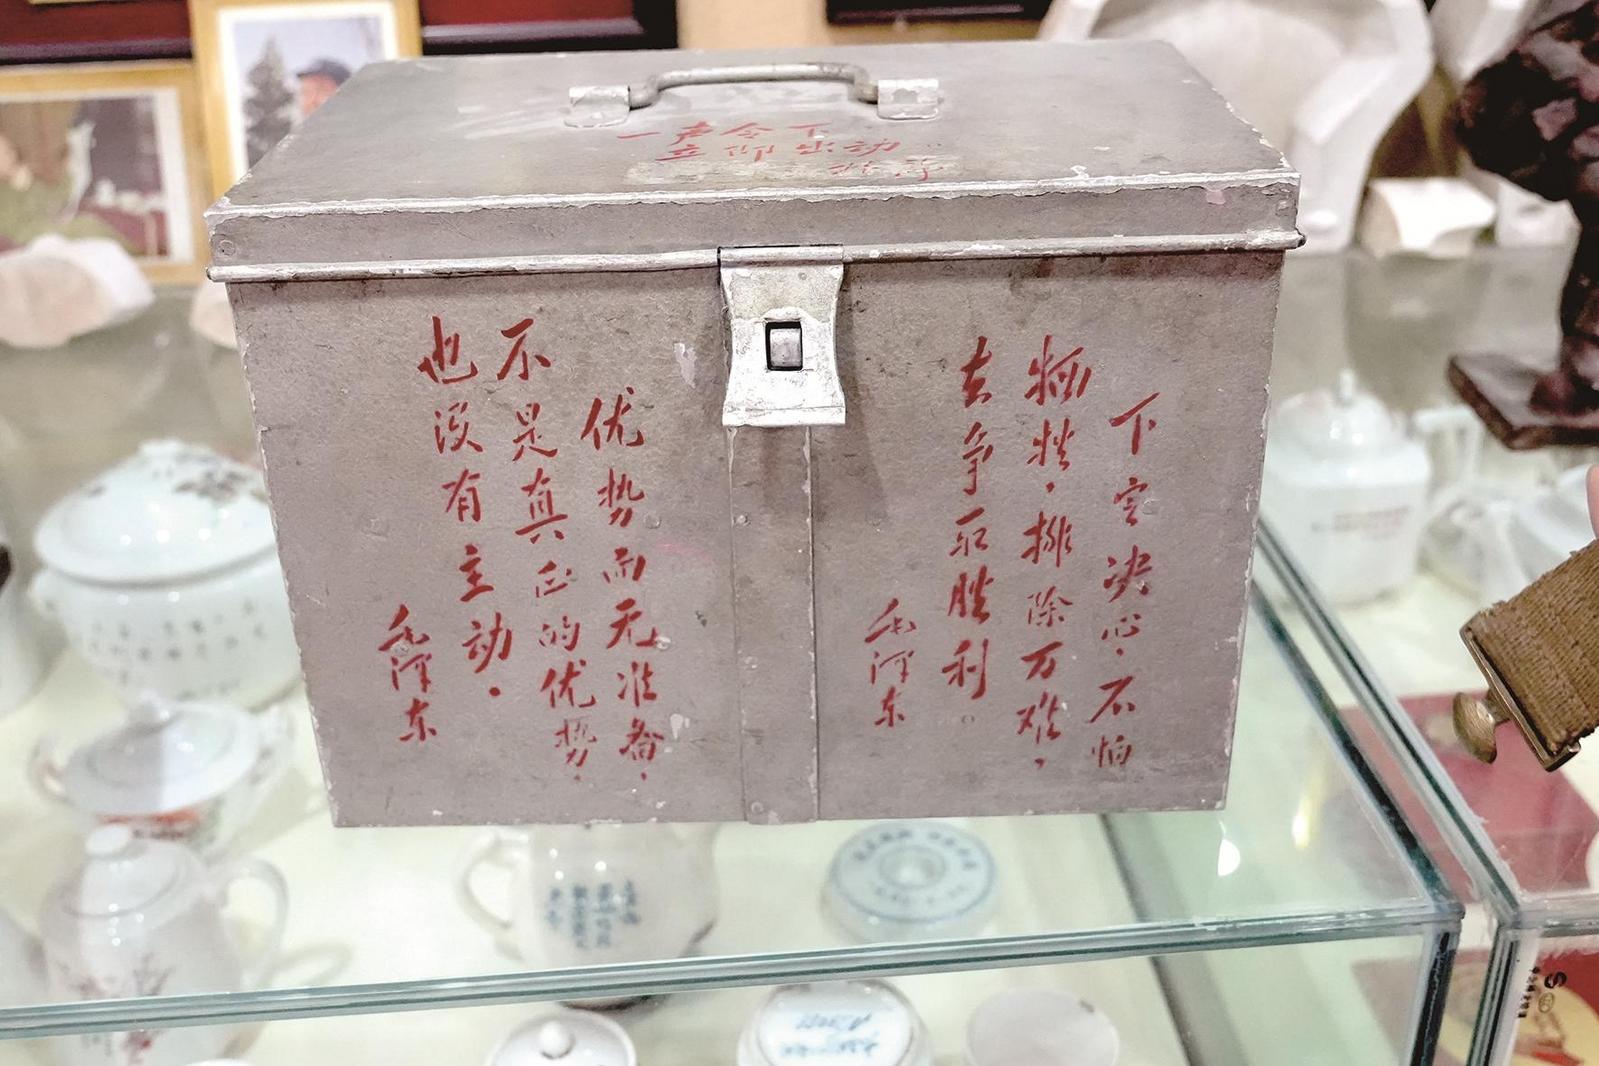 一声令下
立即出动
下定决心，不怕
牺牲，排除万难，
去争取胜利。
毛泽东
优势而无准备，
不是真正的优势，
也没有主动。
毛泽东